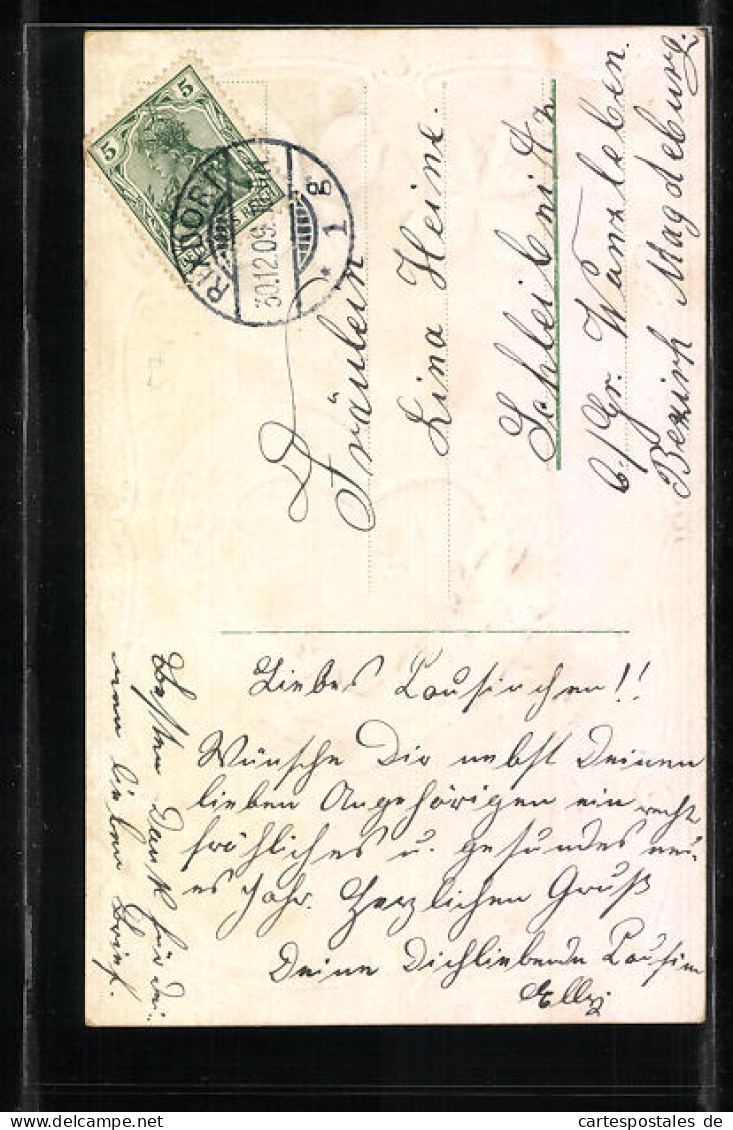 5
5
DEUTSCHES REICH
RIXDORF
30.12.09.
* 1 g
Fräulein
Lina Heine.
Schleibnitz
b./Gr. Wanzleben.
Bezirk Magdeburg.
Liebes Cousinchen!!
Wünsche Dir nebst Deinen
lieben Angehörigen ein recht
fröhliches u. gesundes neu-
es Jahr. Herzlichen Gruß
Deine Dichliebende Cousine
Elly
Besten Dank für Dei-
nen lieben Brief.
cartespostales de